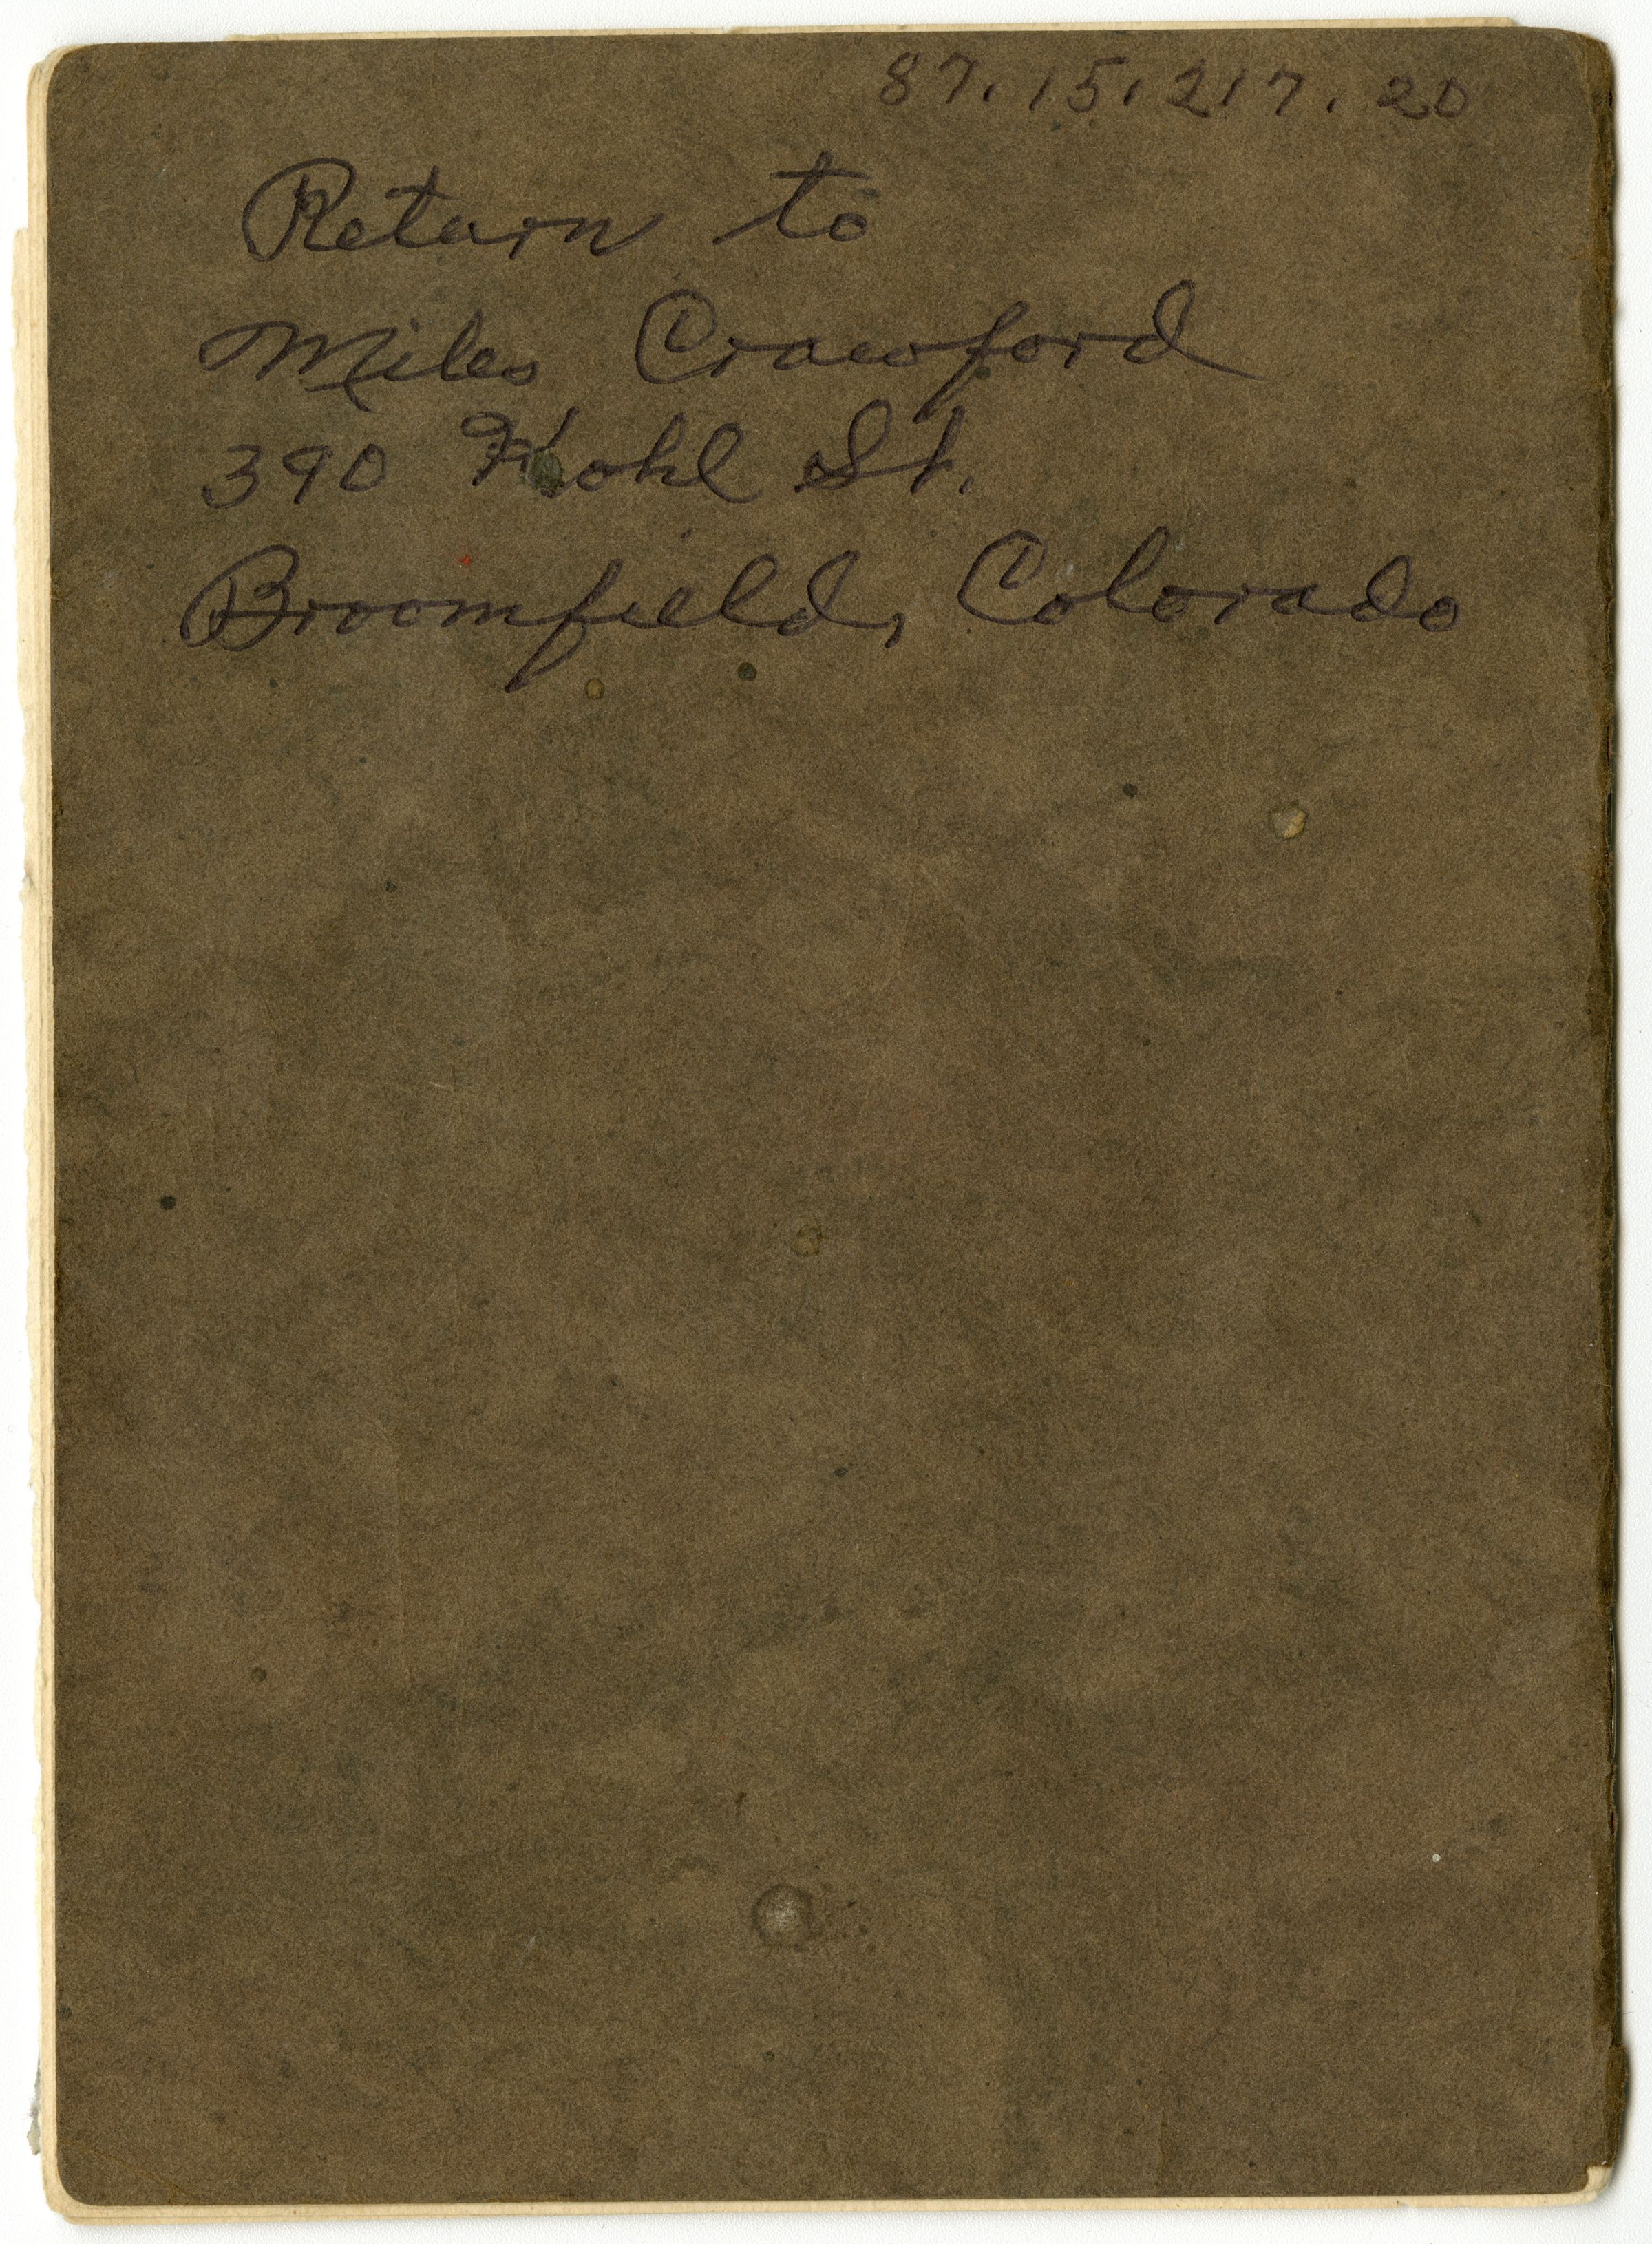 87.15.217.20
Return to
Miles Crawford
390 Kohl St.
Broomfield, Colorado